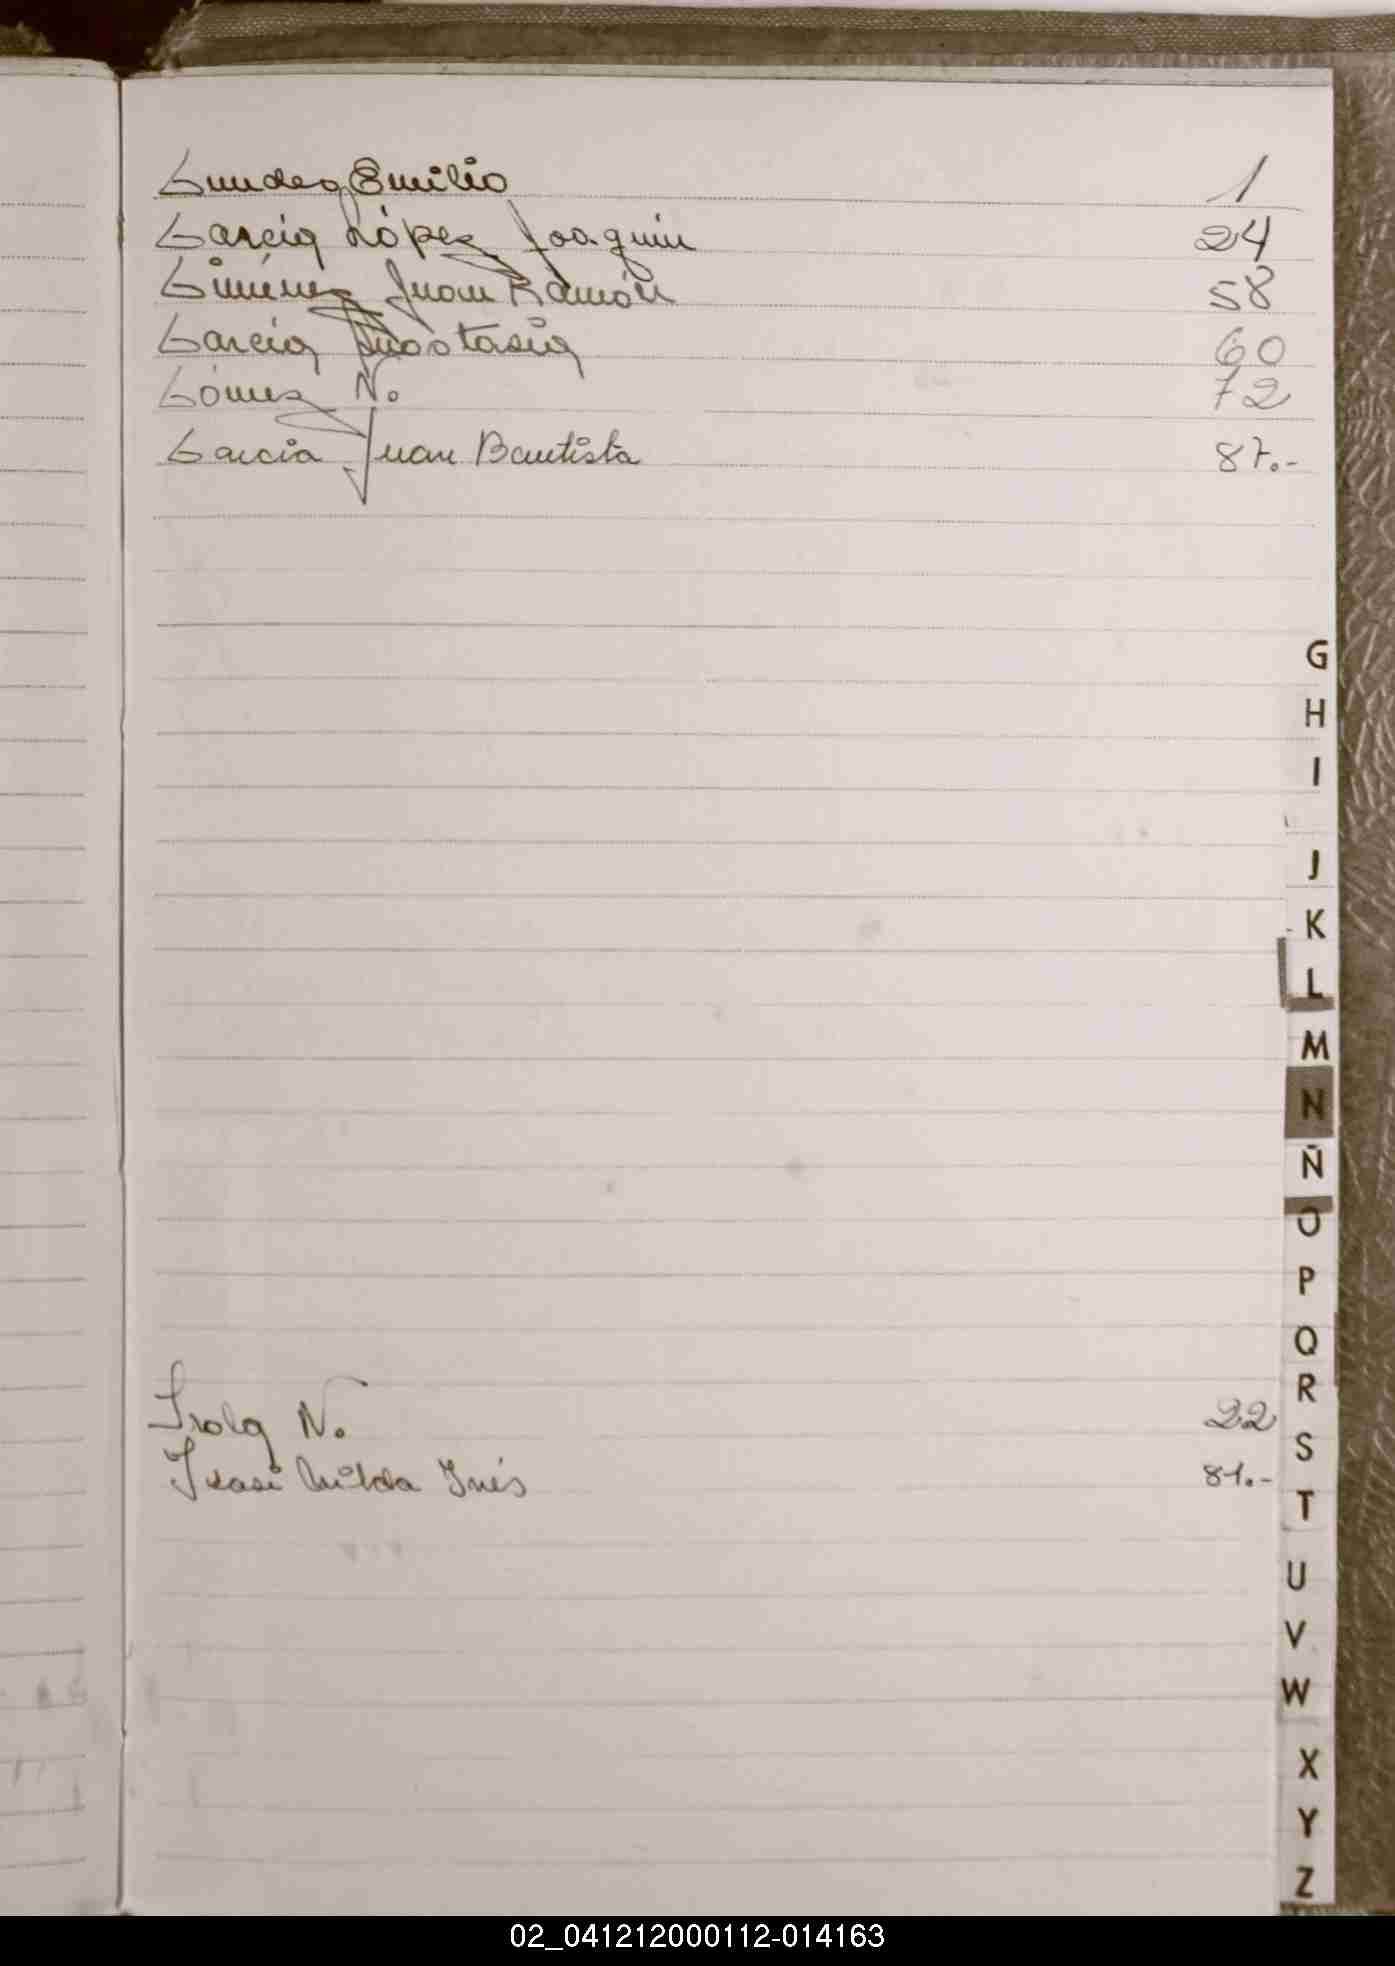 Gundeg Emilio 1
García López Joaquin 24
Giménez Juan Ramón 58
García Anastasia 60
Gómez N. 72
Garcia Juan Bautista 87.-
G
H
I
J
K
L
M
N
Ñ
O
P
Q
R
S
T
U
V
W
X
Y
Z
N. 22
Isasi Nilda Inés 81.-
02_041212000112-014163